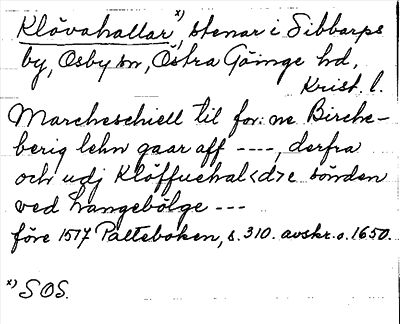 Klövahallar x), stenar i Sibbarps
by, Osby sn, Östra Göinge hd,
Krist. l.
Marcheschiell til for:ne Birche-
berig lehn gaar aff ----, derfra
och udj Klöffuehal<d>e sönden
ved Langebölge ---
före 1517 Palteboken, s. 310. avskr. o. 1650.
x) SOS.